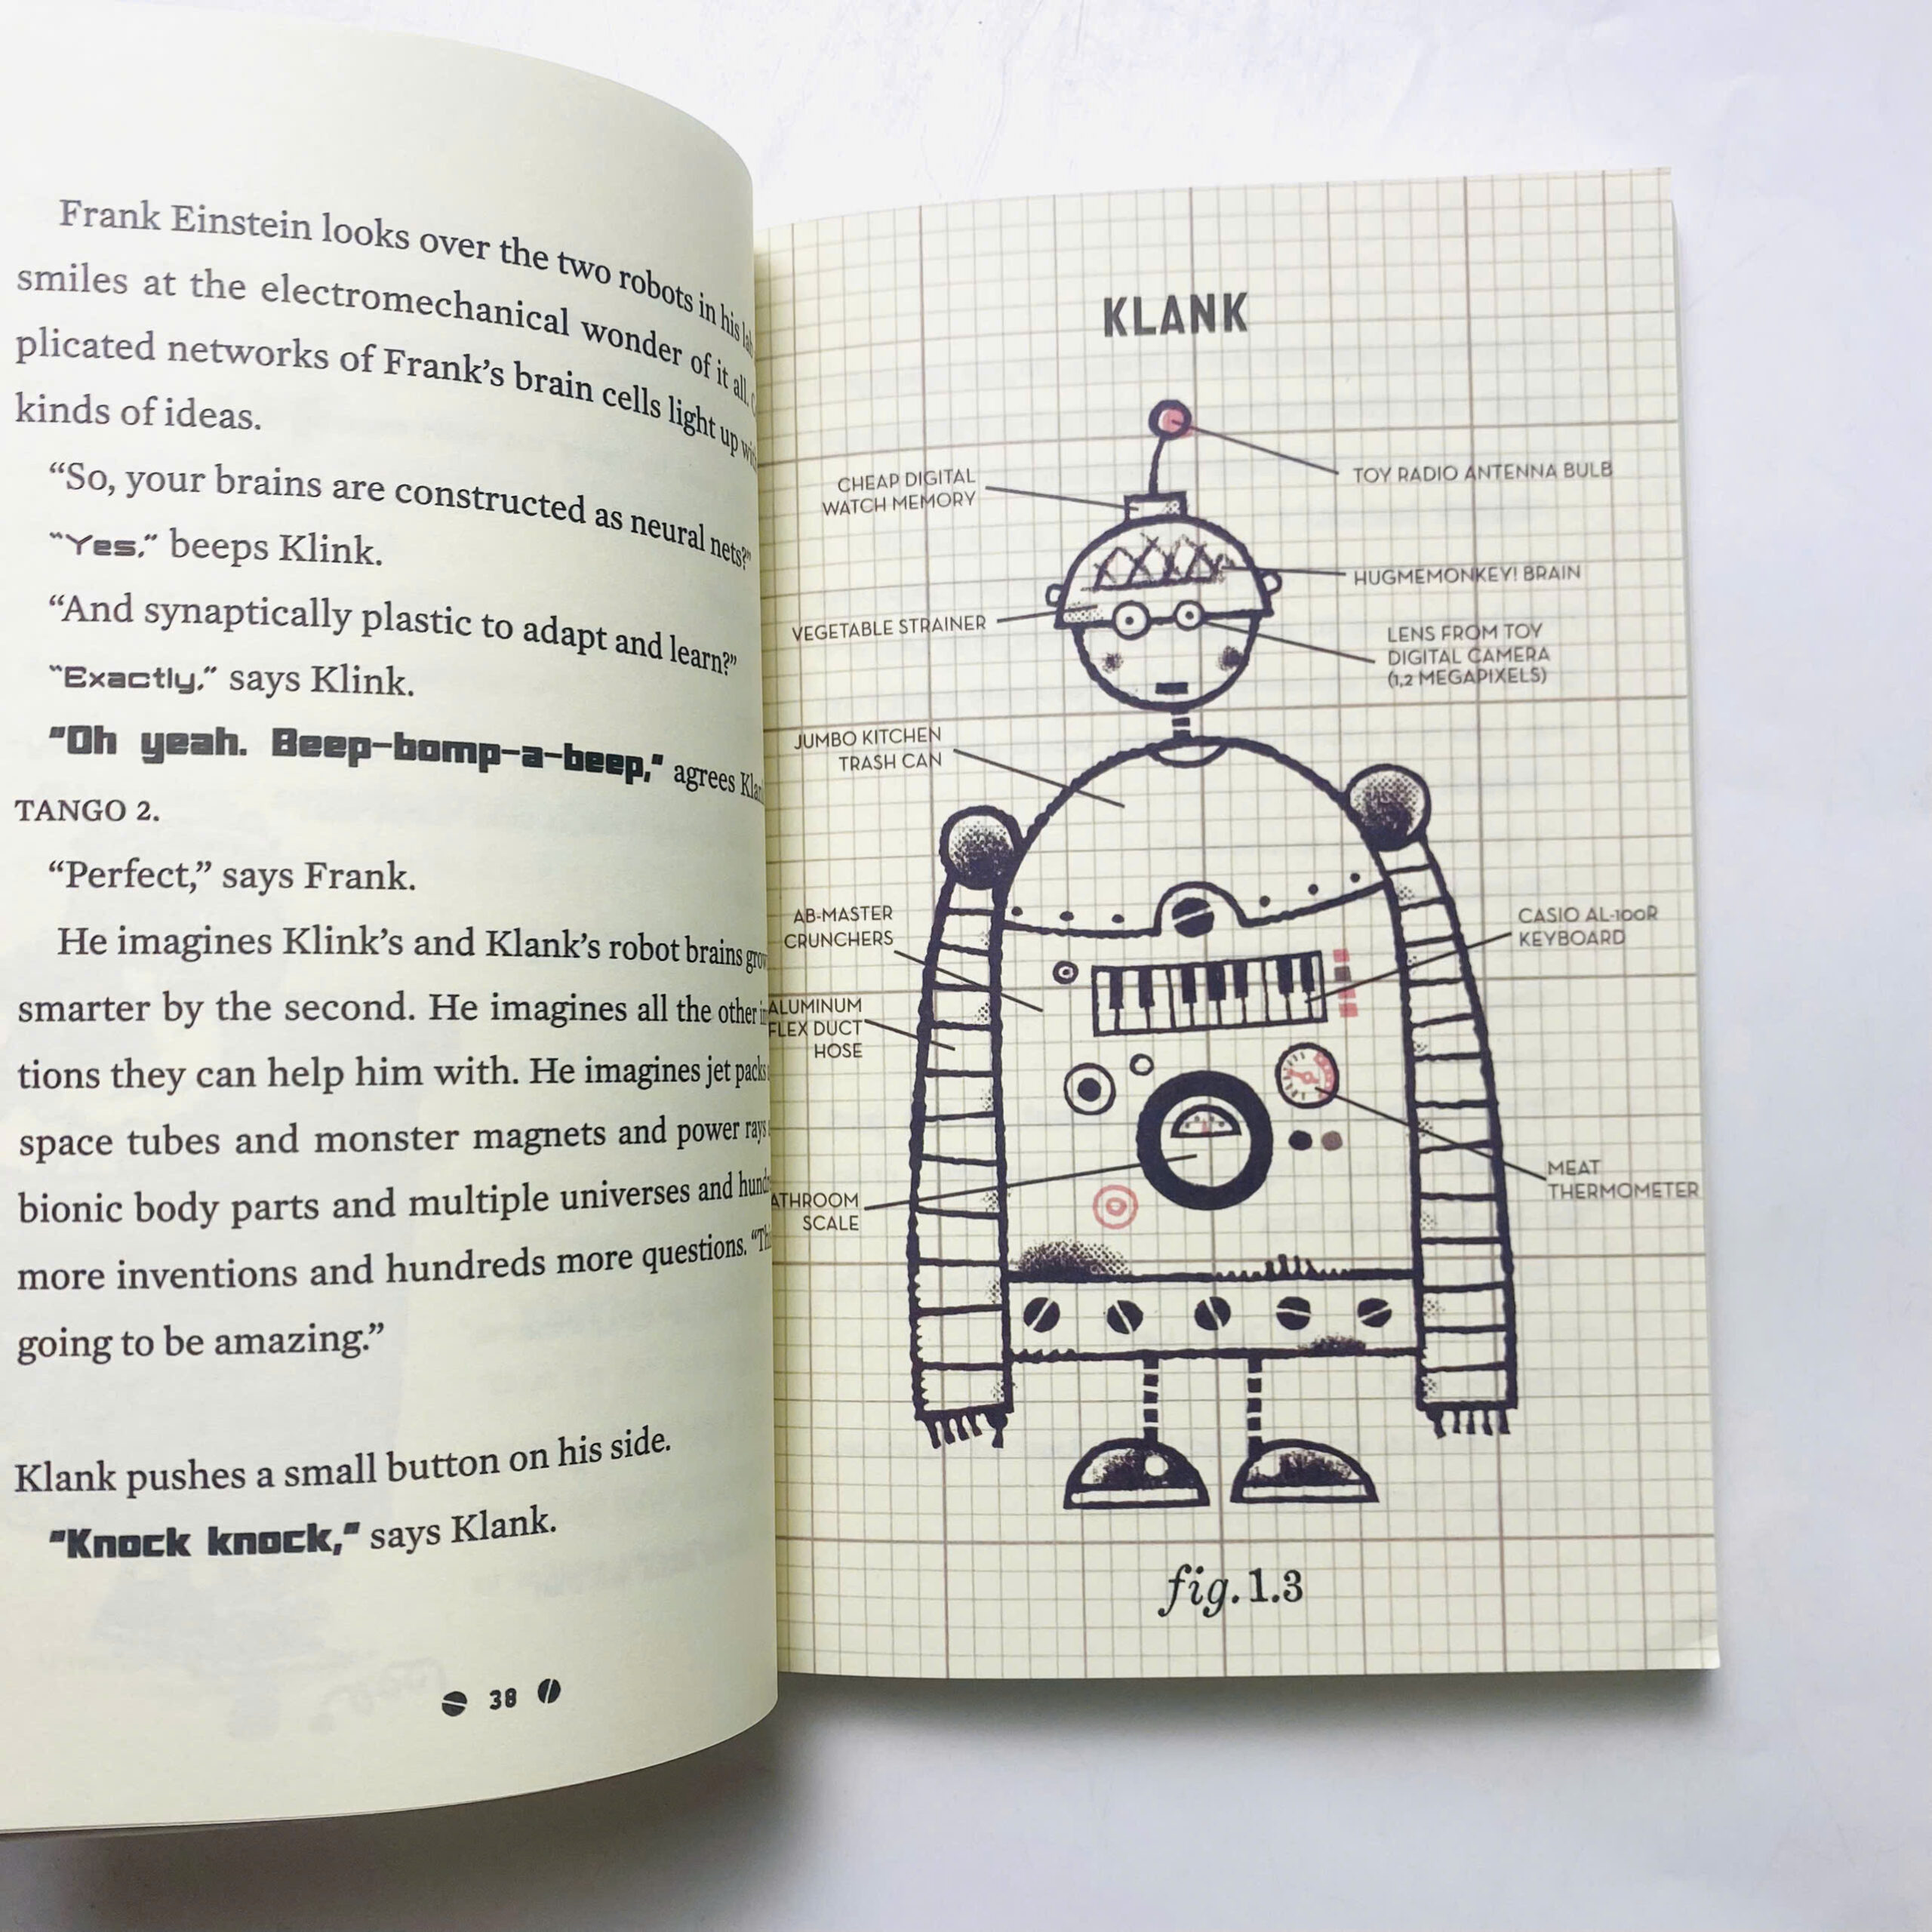 Frank Einstein looks over the two robots in his lab
smiles at the electromechanical wonder of it all.
plicated networks of Frank's brain cells light up with
kinds of ideas.
“So, your brains are constructed as neural nets?”
“Yes.” beeps Klink.
“And synaptically plastic to adapt and learn?”
“Exactly.” says Klink.
“Oh yeah. Beep-bomp-a-beep,” agrees
TANGO 2.
“Perfect,” says Frank.
He imagines Klink's and Klank's robot brains
smarter by the second. He imagines all the other
tions they can help him with. He imagines jet packs
space tubes and monster magnets and power rays
bionic body parts and multiple universes and
more inventions and hundreds more questions.
going to be amazing.”
Klank pushes a small button on his side.
“Knock knock,” says Klank.
38
KLANK
CHEAP DIGITAL
WATCH MEMORY
TOY RADIO ANTENNA BULB
HUGMEMONKEY! BRAIN
VEGETABLE STRAINER
LENS FROM TOY
DIGITAL CAMERA
(1,2 MEGAPIXELS)
JUMBO KITCHEN
TRASH CAN
AB-MASTER
CRUNCHERS
CASIO AL-100R
KEYBOARD
ALUMINUM
FLEX DUCT
HOSE
MEAT
THERMOMETER
ATHROOM
SCALE
fig.1.3